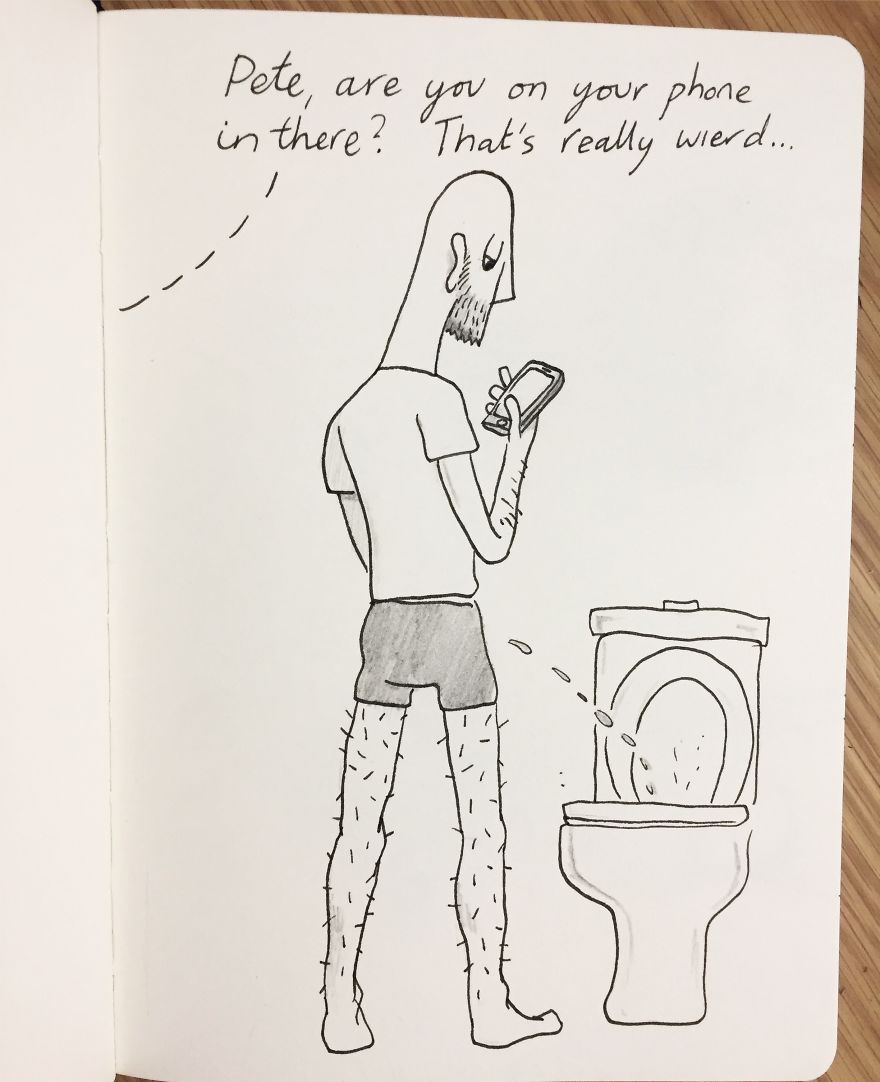 Pete, are you on your phone
in there? That's really wierd...